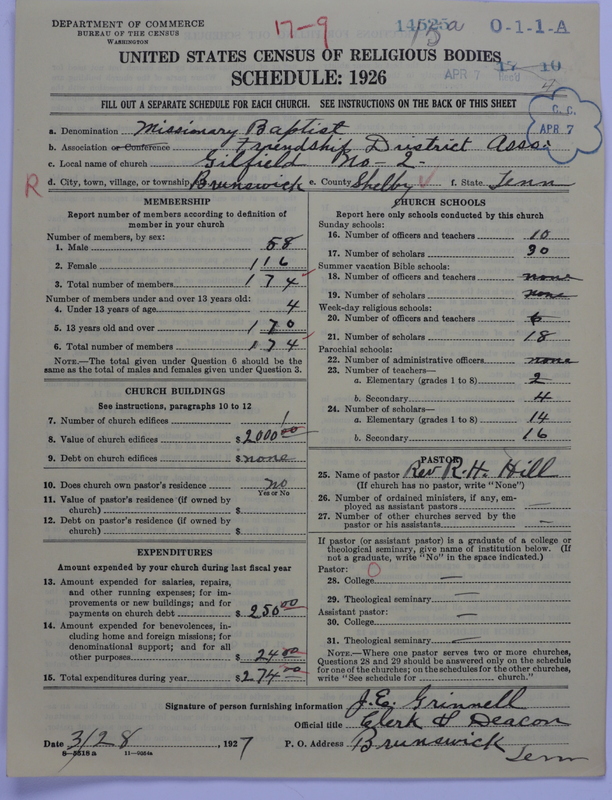 DEPARTMENT OF COMMERCE
BUREAU OF THE CENSUS
WASHINGTON
17-9
14525
15a
0-1-1-A
UNITED STATES CENSUS OF RELIGIOUS BODIES
APR 7
SCHEDULE: 1926
FILL OUT A SEPARATE SCHEDULE FOR EACH CHURCH. SEE INSTRUCTIONS ON THE BACK OF THIS SHEET
C. C.
APR 7
a. Denomination Missionary Baptist
b. Association or Conference Friendship District Asso.
c. Local name of church Gilfield No-2-
R d. City, town, village, or township Brunswick e. County Shelby f. State Tenn
MEMBERSHIP
Report number of members according to definition of
member in your church
Number of members, by sex:
1. Male 58
2. Female 116
3. Total number of members 174
Number of members under and over 13 years old:
4. Under 13 years of age 4
5. 13 years old and over 170
6. Total number of members 174
NOTE.—The total given under Question 6 should be the
same as the total of males and females given under Question 3.
CHURCH BUILDINGS
See instructions, paragraphs 10 to 12
7. Number of church edifices 1
8. Value of church edifices $2000 00
9. Debt on church edifices $none
10. Does church own pastor's residence no
Yes or No
11. Value of pastor's residence (if owned by
church) $
12. Debt on pastor's residence (if owned by
church) $
EXPENDITURES
Amount expended by your church during last fiscal year
13. Amount expended for salaries, repairs,
and other running expenses; for im-
provements or new buildings; and for
payments on church debt $250 00
14. Amount expended for benevolences, in-
cluding home and foreign missions; for
denominational support; and for all
other purposes $24 00
15. Total expenditures during year $274 00
CHURCH SCHOOLS
Report here only schools conducted by this church
Sunday schools:
16. Number of officers and teachers 10
17. Number of scholars 90
Summer vacation Bible schools:
18. Number of officers and teachers none
19. Number of scholars none
Week-day religious schools:
20. Number of officers and teachers 6
21. Number of scholars 18
Parochial schools:
22. Number of administrative officers none
23. Number of teachers—
a. Elementary (grades 1 to 8) 2
b. Secondary 4
24. Number of scholars—
a. Elementary (grades 1 to 8) 14
b. Secondary 16
PASTOR
25. Name of pastor Rev R. H. Hill
(If church has no pastor, write "None")
26. Number of ordained ministers, if any, em-
ployed as assistant pastors —
27. Number of other churches served by the
pastor or his assistants —
If pastor (or assistant pastor) is a graduate of a college or
theological seminary, give name of institution below. (If
not a graduate, write "No" in the space indicated.)
Pastor: O
28. College —
29. Theological seminary —
Assistant pastor:
30. College —
31. Theological seminary —
NOTE.—Where one pastor serves two or more churches,
Questions 28 and 29 should be answered only on the schedule
for one of the churches; on the schedules for the other churches,
write "See schedule for ______ church."
Signature of person furnishing information J. E. Grinnell
Official title Clerk & Deacon
Date 3/28, 1927 P. O. Address Brunswick
Tenn
8—5518a 11—9554a